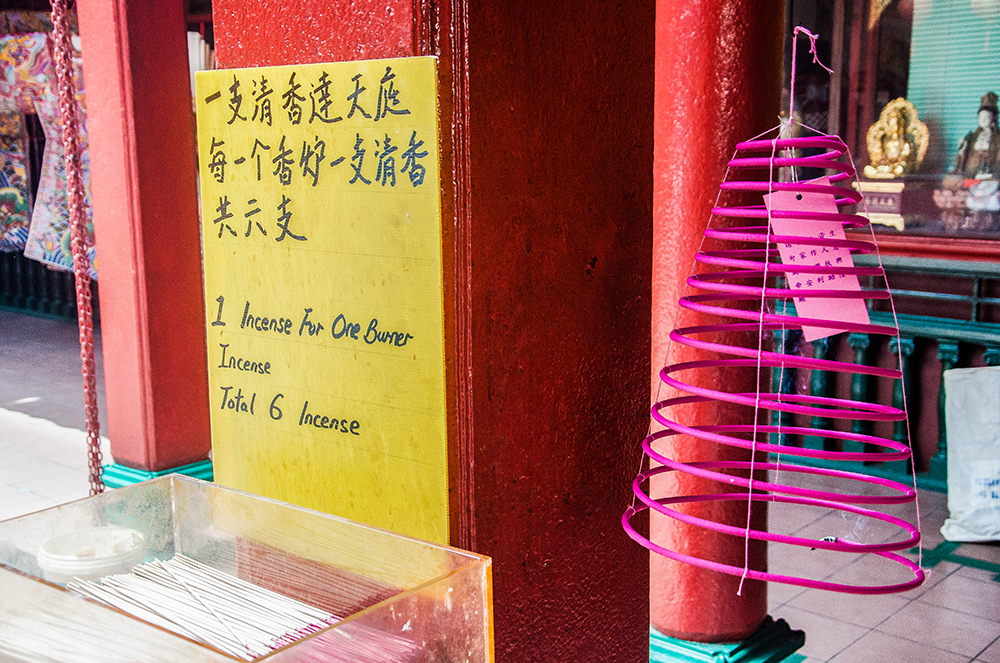 一支清香達天庭
每一个香炉一支清香
共六支
1 Incense For One Burner
Incense
Total 6 Incense